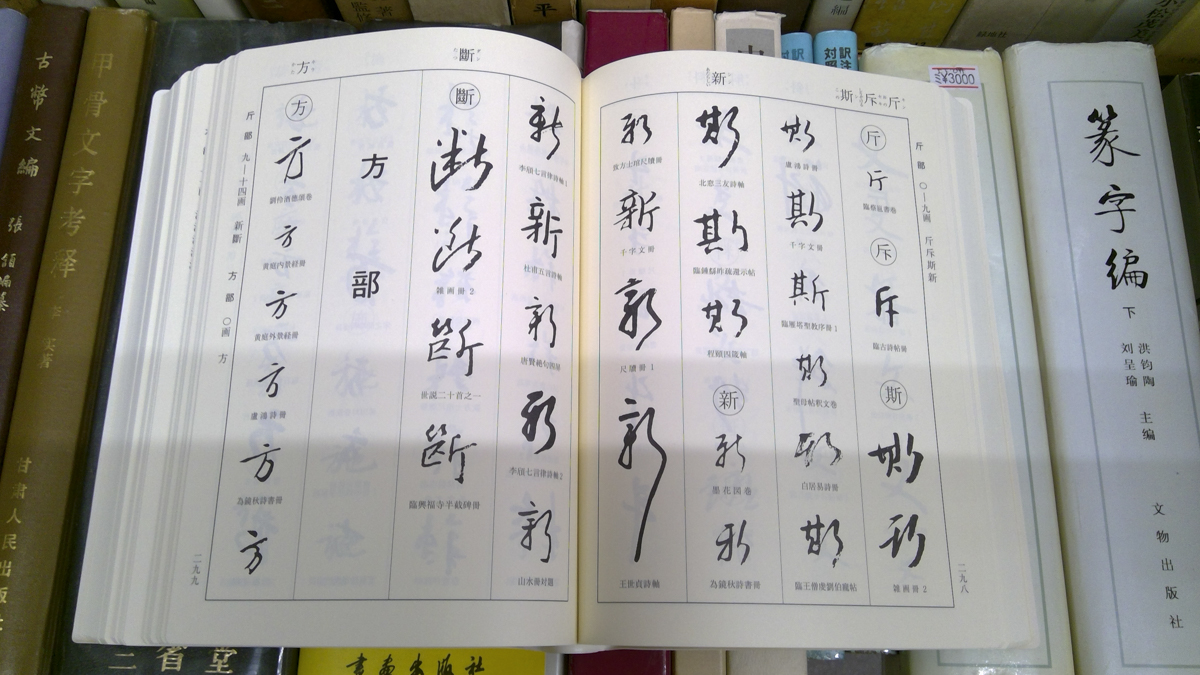 斤斥斯
新
斤部 〇—九画 斤斥斯新
斤
斤
臨蘭亭書巻
斥
斥
臨古詩帖冊
斯
斯
斯
雑画冊 2
斯
盧鴻詩冊
斯
千字文冊
斯
臨雁塔聖教序冊 1
斯
聖母帖釈文巻
斯
白居易詩冊
斯
臨王僧虔劉伯寵帖
斯
北窓三友詩軸
斯
斯
程頤四箴軸
新
新
墨花図巻
新
為鏡秋詩書冊
新
新
千字文冊
新
尺牘冊 1
新
王世貞詩軸
二九八
斷
方
新
李頎七言律詩軸 1
新
杜甫五言詩軸
新
唐賢絶句四屏
新
李頎七言律詩軸 2
新
山水冊対題
斷
斷
斷
雑画冊 2
斷
世説二十首之一
斷
臨興福寺半截碑冊
方部
方
方
劉伶酒徳頌巻
方
黄庭内景経冊
方
黄庭外景経冊
方
盧鴻詩冊
方
為鏡秋詩書冊
方
斤部 九—十四画 新斷 方部 〇画 方
二九九
古幣文編
張頷編纂
甲骨文字考释
甘肃人民出版社
書画出版社
訳注
対照
¥3000
篆字编
下
洪钧陶
刘呈瑜
主编
文物出版社